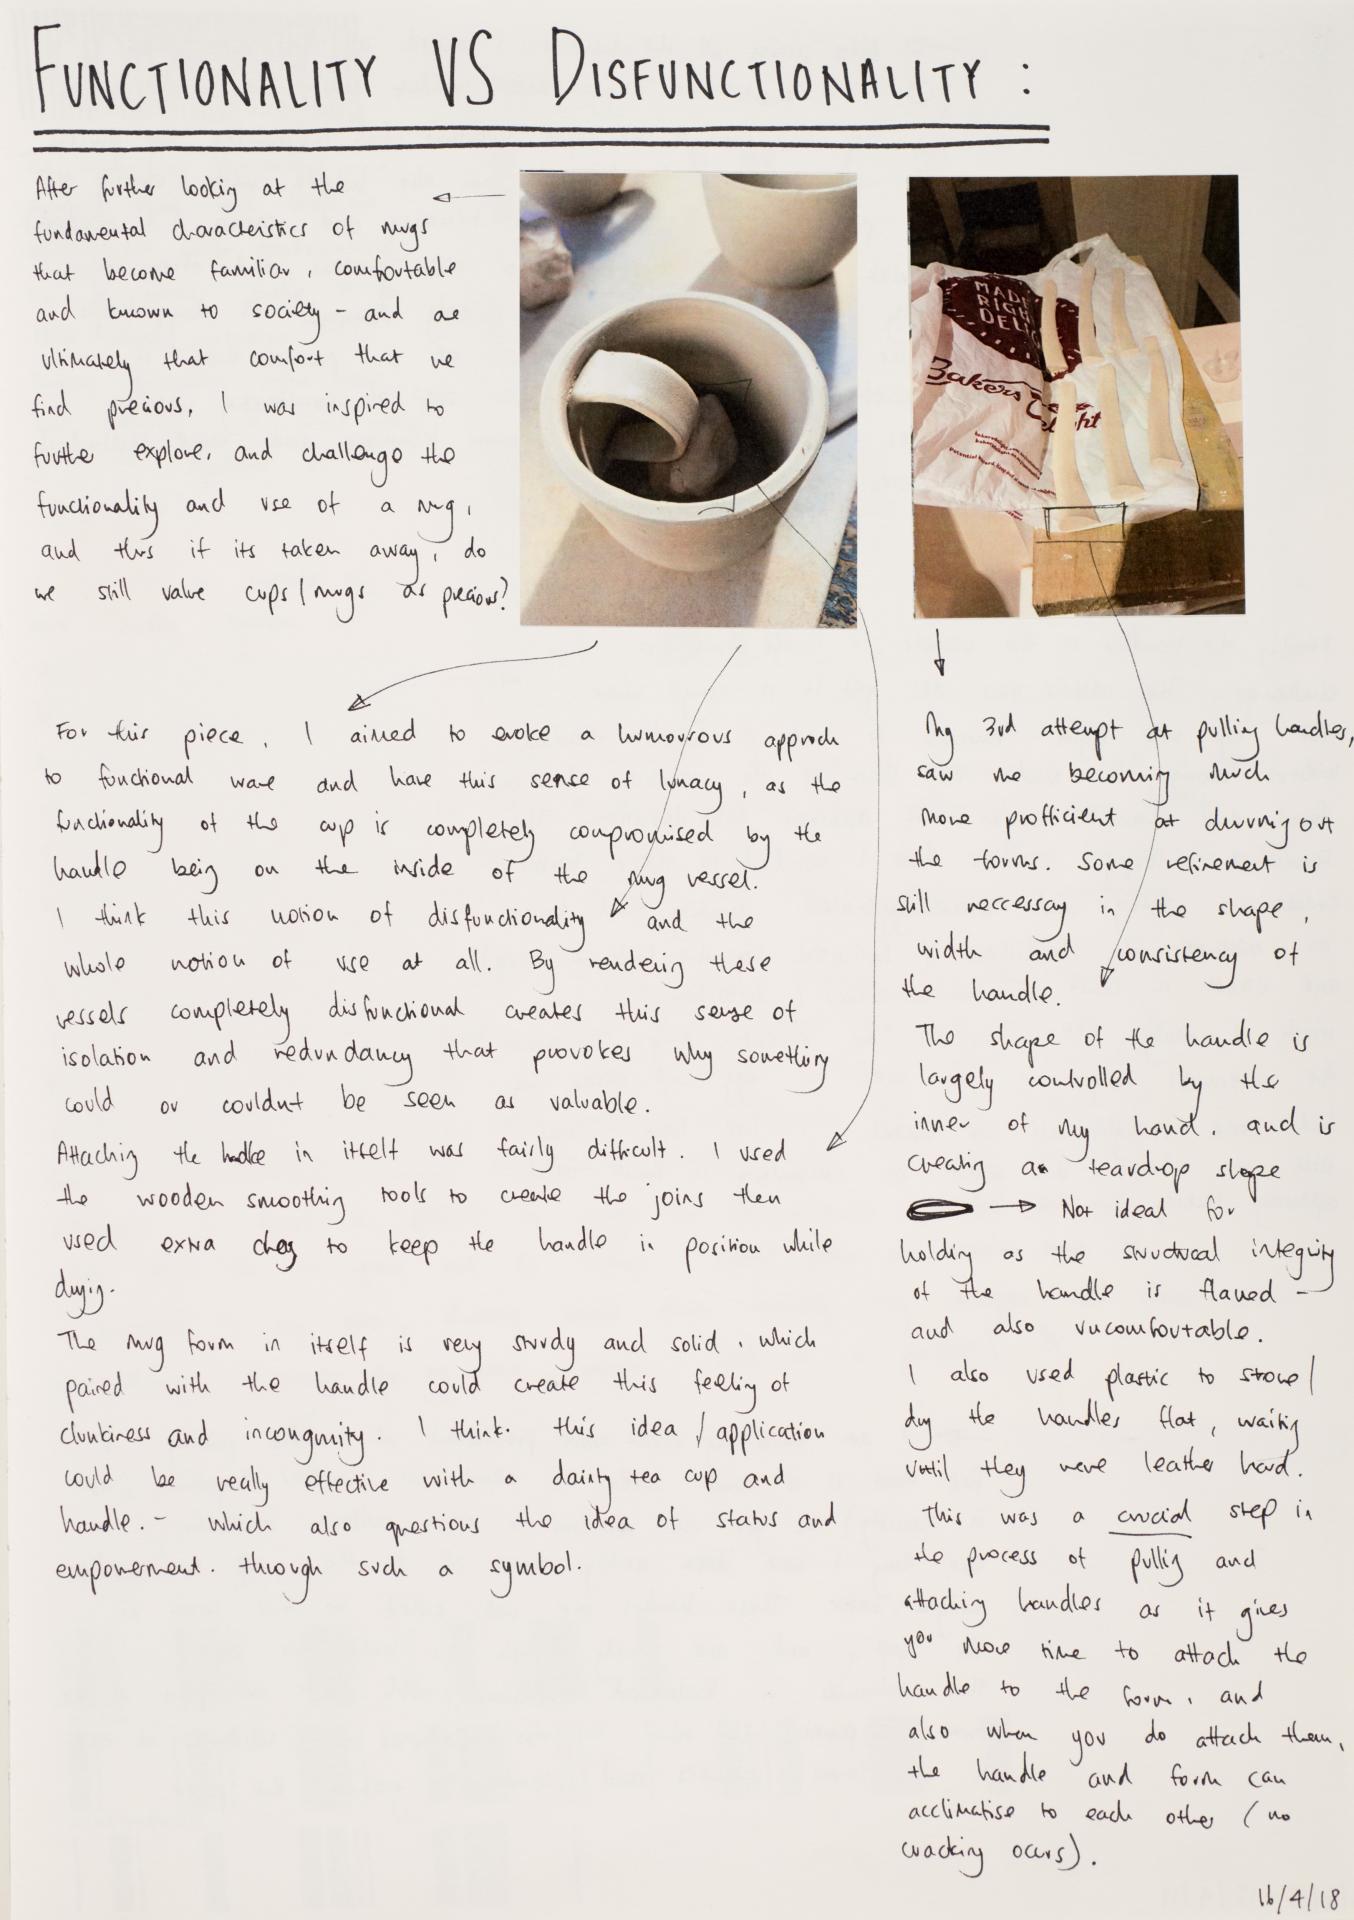 FUNCTIONALITY VS DISFUNCTIONALITY :
After further looking at the
fundamental characteristics of mugs
that become familiar, comfortable
and known to society - and are
ultimately that comfort that we
find precious, I was inspired to
further explore, and challenge the
functionality and use of a mug,
and thus if its taken away, do
we still value cups/mugs as precious?
MADE
RIGH
DELI
Bakers Delight
For this piece, I aimed to evoke a humourous approch
to functional ware and have this sense of lunacy, as the
functionality of the cup is completely compromised by the
handle being on the inside of the mug vessel.
I think this notion of disfunctionality and the
whole notion of use at all. By rendering these
vessels completely disfunctional creates this sense of
isolation and redundancy that provokes why something
could or couldnt be seen as valuable.
Attaching the handle in itself was fairly difficult. I used
the wooden smoothing tools to create the joins then
used extra clay to keep the handle in position while
drying.
The mug form in itself is very sturdy and solid, which
paired with the handle could create this feeling of
clunkiness and incongruity. I think this idea / application
could be really effective with a dainty tea cup and
handle. - which also questions the idea of status and
empowerment. through such a symbol.
My 3rd attempt at pulling handles,
saw me becoming much
more profficient at churning out
the forms. Some refinement is
still neccessay in the shape,
width and consistency of
the handle.
The shape of the handle is
largely controlled by the
inner of my hand. and is
creating a teardrop shape
→ Not ideal for
holding as the structural integrity
of the handle is flawed -
and also uncomfortable.
I also used plastic to store/
dry the handles flat, waiting
until they were leather hard.
This was a crucial step in
the process of pulling and
attaching handles as it gives
you more time to attach the
handle to the form, and
also when you do attach them,
the handle and form can
acclimatise to each other (no
cracking occurs).
16/4/18